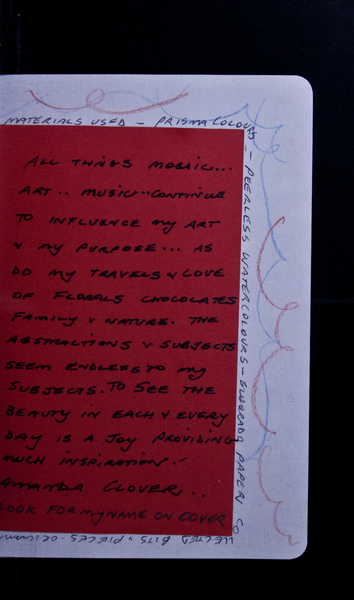 MATERIALS USED - PRISMACOLOURS - PEERLESS WATERCOLOURS - ELDORADO PAPER CO
LLECTED BITS & PIECES
ALL THINGS MOSAIC...
ART.. MUSIC.. CONTINUE
TO INFLUENCE MY ART
& MY PURPOSE... AS
DO MY TRAVELS & LOVE
OF FLORALS CHOCOLATES
FAMILY & NATURE. THE
ABSTRACTIONS & SUBJECTS
SEEM ENDLESS TO MY
SUBJECTS. TO SEE THE
BEAUTY IN EACH & EVERY
DAY IS A JOY PROVIDING
MUCH INSPIRATION!
AMANDA CLOVER..
LOOK FOR MY NAME ON COVER